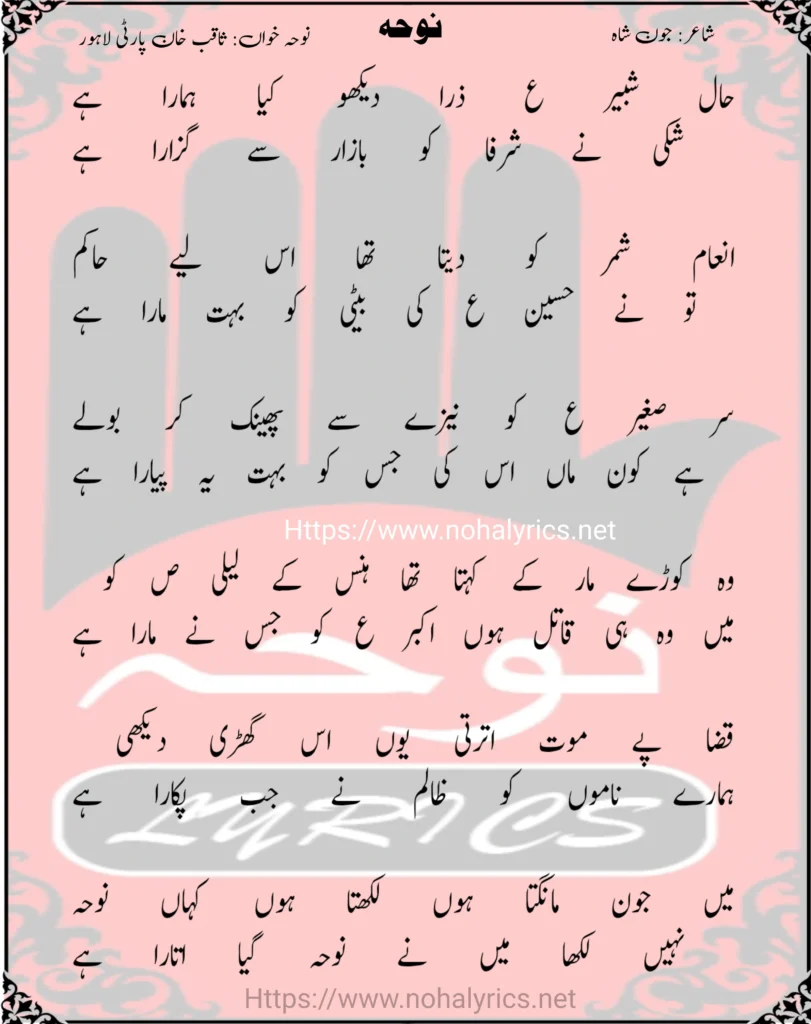 شاعر: جون شاہ
نوحہ
نوحہ خواں: ثاقب خان پارٹی لاہور
حال شبیر ع ذرا دیکھو کیا ہمارا ہے
شکی نے شرفا کو بازار سے گزارا ہے
انعام شمر کو دیتا تھا اس لیے حاکم
تو نے حسین ع کی بیٹی کو بہت مارا ہے
سر صغیر ع کو نیزے سے پھینک کر بولے
ہے کون ماں اس کی جس کو بہت یہ پیارا ہے
Https://www.nohalyrics.net
وہ کوڑے مار کے کہتا تھا ہنس کے لیلی ص کو
میں وہ ہی قاتل ہوں اکبر ع کو جس نے مارا ہے
نوحہ
قضا پے موت اترتی یوں اس گھڑی دیکھی
ہمارے ناموں کو ظالم نے جب پکارا ہے
LYRICS
میں جون مانگتا ہوں لکھتا ہوں کہاں نوحہ
نہیں لکھا میں نے نوحہ گیا اتارا ہے
Https://www.nohalyrics.net